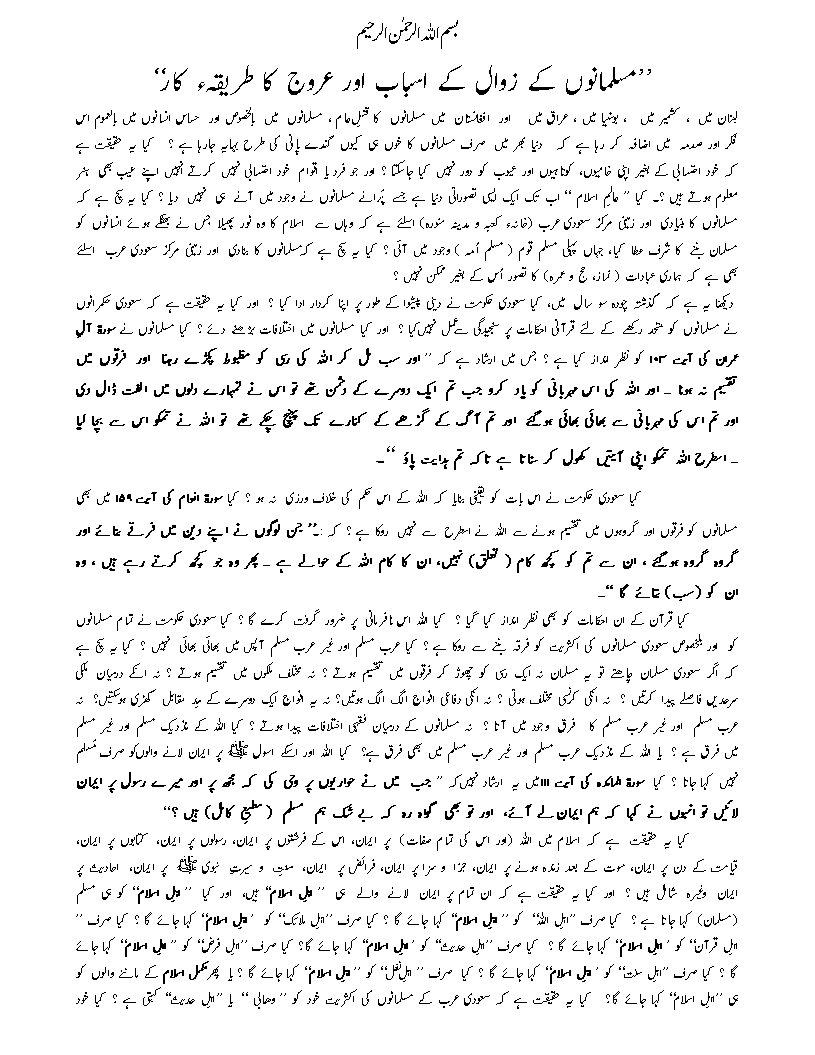 بسم اللہ الرحمٰن الرحیم
’’مسلمانوں کے زوال کے اسباب اور عروج کا طریقہء کار‘‘
لبنان میں ، کشمیر میں ، بوسنیا میں ، عراق میں اور افغانستان میں مسلمانوں کا قتلِ عام ، مسلمانوں میں بالخصوص اور حساس انسانوں میں بالعموم اس
فکر اور صدمہ میں اضافہ کر رہا ہے کہ دنیا بھر میں صرف مسلمانوں کا خوں ہی کیوں گندے پانی کی طرح بہایہ جارہا ہے ؟ کیا یہ حقیقت ہے
کہ خود احتسابی کے بغیر اپنی خامیوں، کوتاہیوں اور عیوب کو دور نہیں کیا جاسکتا ؟ اور جو فرد یا اقوام خود احتسابی نہیں کرتے اُنہیں اپنے عیب بھی ہنر
معلوم ہوتے ہیں ؟۔ کیا ’’ عالمِ اسلام ‘‘ اب تک ایک ایسی تصوراتی دنیا ہے جسے پُرانے مسلمانوں نے وجود میں آنے ہی نہیں دیا ؟ کیا یہ سچ ہے کہ
مسلمانوں کا بنیادی اور زمینی مرکز سعودی عرب (خانہء کعبہ و مدینہ منورہ) اسلئے ہے کہ وہاں سے اسلام کا وہ نور پھیلا جس نے بھٹکے ہوئے انسانوں کو
مسلمان بننے کا شرف عطا کیا، جہاں پہلی مسلم قوم ( مسلم اُمہ ) وجود میں آئی ؟ کیا یہ سچ ہے کہ مسلمانوں کا بنادی اور زمینی مرکز سعودی عرب اسلئے
بھی ہے کہ ہماری عبادات ( نماز، حج و عمرہ) کا تصور اُس کے بغیر ممکن نہیں ؟
دیکھنا یہ ہے کہ گذشتہ چودہ سو سال میں، کیا سعودی حکومت نے دینی پیشوا کے طور پر اپنا کردار ادا کیا ؟ اور کیا یہ حقیقت ہے کہ سعودی حکمرانوں
نے مسلمانوں کو متحد رکھنے کے لئے قرآنی احکامات پر سنجیدگی سے عمل نہیں کیا ؟ اور کیا مسلمانوں میں اختلافات بڑھنے دئے ؟ کیا مسلمانوں نے سورۃ آلِ
عمران کی آیت ۱۰۳ کو نظر انداز کیا ہے ؟ جس میں ارشاد ہے کہ ’’ اور سب مل کر اللہ کی رسی کو مظبوط پکڑے رہنا اور فرقوں میں
تقسیم نہ ہونا ۔ اور اللہ کی اس مہربانی کو یاد کرو جب تم ایک دوسرے کے دشمن تھے تو اس نے تمہارے دلوں میں الفت ڈال دی
اور تم اس کی مہربانی سے بھائی بھائی ہوگئے اور تم آگ کے گڑھے کے کنارے تک پہنچ چکے تھے تو اللہ نے تمکو اس سے بچا لیا
۔ اسطرح اللہ تمکو اپنی آیتیں کھول کر سناتا ہے تاکہ تم ہدایت پاؤ ‘‘۔
کیا سعودی حکومت نے اس بات کو یقینی بنایا کہ اللہ کے اس حکم کی خلاف ورزی نہ ہو ؟ کیا سورۃ انعام کی آیت ۱۵۹ میں بھی
مسلمانوں کو فرقوں اور گروہوں میں تقسیم ہونے سے اللہ نے اسطرح سے نہیں روکا ہے ؟ کہ :۔’’ جن لوگوں نے اپنے دین میں فرقے بنائے اور
گروہ گروہ ہوگئے ، ان سے تم کو کچھ کام ( تعلق) نہیں، ان کا کام اللہ کے حوالے ہے ۔ پھر وہ جو کچھ کرتے رہے ہیں ، وہ
ان کو (سب) بتائے گا ‘‘۔
کیا قرآن کے ان احکامات کو بھی نظر انداز کیا گیا ؟ کیا اللہ اس نافرمانی پر ضرور گرفت کرے گا ؟ کیا سعودی حکومت نے تمام مسلمانوں
کو اور بلخصوص سعودی مسلمانوں کی اکثریت کو فرقہ بننے سے روکا ہے ؟ کیا عرب مسلم اور غیر عرب مسلم آپس میں بھائی بھائی نہیں ؟ کیا یہ سچ ہے
کہ اگر سعودی مسلمان چاھتے تو یہ مسلمان نہ ایک رسی کو چھوڑ کر فرقوں میں تقسیم ہوتے ؟ نہ مختلف ملکوں میں تقسیم ہوتے ؟ نہ انکے درمیان ملکی
سرحدیں فاصلے پیدا کرتیں ؟ نہ انکی کرنسی مختلف ہوتی ؟ نہ انکی دفاعی افواج الگ الگ ہوتیں؟ نہ یہ افواج ایک دوسرے کے مدِ مقابل کھڑی ہوسکتیں؟ نہ
عرب مسلم اور غیر عرب مسلم کا فرق وجود میں آتا ؟ نہ مسلمانوں کے درمیان فقہی اختلافات پیدا ہوتے ؟ کیا اللہ کے نذدیک مسلم اور غیر مسلم
میں فرق ہے ؟ یا اللہ کے نذدیک عرب مسلم اور غیر عرب مسلم میں بھی فرق ہے؟ کیا اللہ اور اسکے اسول ﷺ پر ایمان لانے والوں کو صرف مُسلم
نہیں کہا جاتا ؟ کیا سورۃ المائدہ کی آیت ۱۱۱ میں یہ ارشاد نہیں کہ ’’ جب میں نے حواریوں پر وحی کی کہ مجھ پر اور میرے رسول پر ایمان
لائیں تو انہوں نے کہا کہ ہم ایمان لے آئے، اور تو بھی گواہ رہ کہ بے شک ہم مسلم (مطیعِ کامل) ہیں ؟‘‘
کیا یہ حقیقت ہے کہ اسلام میں اللہ (اور اس کی تمام صفات) پر ایمان، اس کے فرشتوں پر ایمان، رسولوں پر ایمان، کتابوں پر ایمان،
قیامت کے دن پر ایمان، موت کے بعد زندہ ہونے پر ایمان، جزا و سزا پر ایمان، فرائض پر ایمان، سنت و سیرتِ نبوی ﷺ پر ایمان، احادیث پر
ایمان وغیرہ شامل ہیں ؟ اور کیا یہ حقیقت ہے کہ ان تمام پر ایمان لانے والے ہی ’’ اہلِ اسلام‘‘ ہیں، اور کیا ’’ اہلِ اسلام‘‘ کو ہی مسلم
(مسلمان) کہا جاتا ہے ؟ کیا صرف ’’اہلِ اللہ‘‘ کو ’’ اہلِ اسلام‘‘ کہا جائے گا ؟ کیا صرف ’’اہلِ ملائک‘‘ کو ’اہلِ اسلام‘‘ کہا جائے گا ؟ کیا صرف ’’
اہلِ قرآن‘‘ کو ’اہلِ اسلام‘‘ کہا جائے گا ؟ کیا صرف ’’اہلِ حدیث‘‘ کو ’اہلِ اسلام‘‘ کہا جائے گا؟ کیا صرف ’’اہلِ فرض‘‘ کو ’’ اہلِ اسلام‘‘ کہا جائے
گا ؟ کیا صرف ’’اہلِ سنت‘‘ کو ’اہلِ اسلام‘‘ کہا جائے گا ؟ کیا صرف ’’اہلِ نفل‘‘ کو ’’اہلِ اسلام‘‘ کہا جائے گا ؟ یا پھر مکمل اسلام کے ماننے والوں کو
ہی ’’اہلِ اسلام‘‘ کہا جائے گا؟ کیا یہ حقیقت ہے کہ سعودی عرب کے مسلمانوں کی اکثریت خود کو ’’ وھابی ‘‘ یا ’’اہلِ حدیث‘‘ کہتی ہے ؟ کیا خود